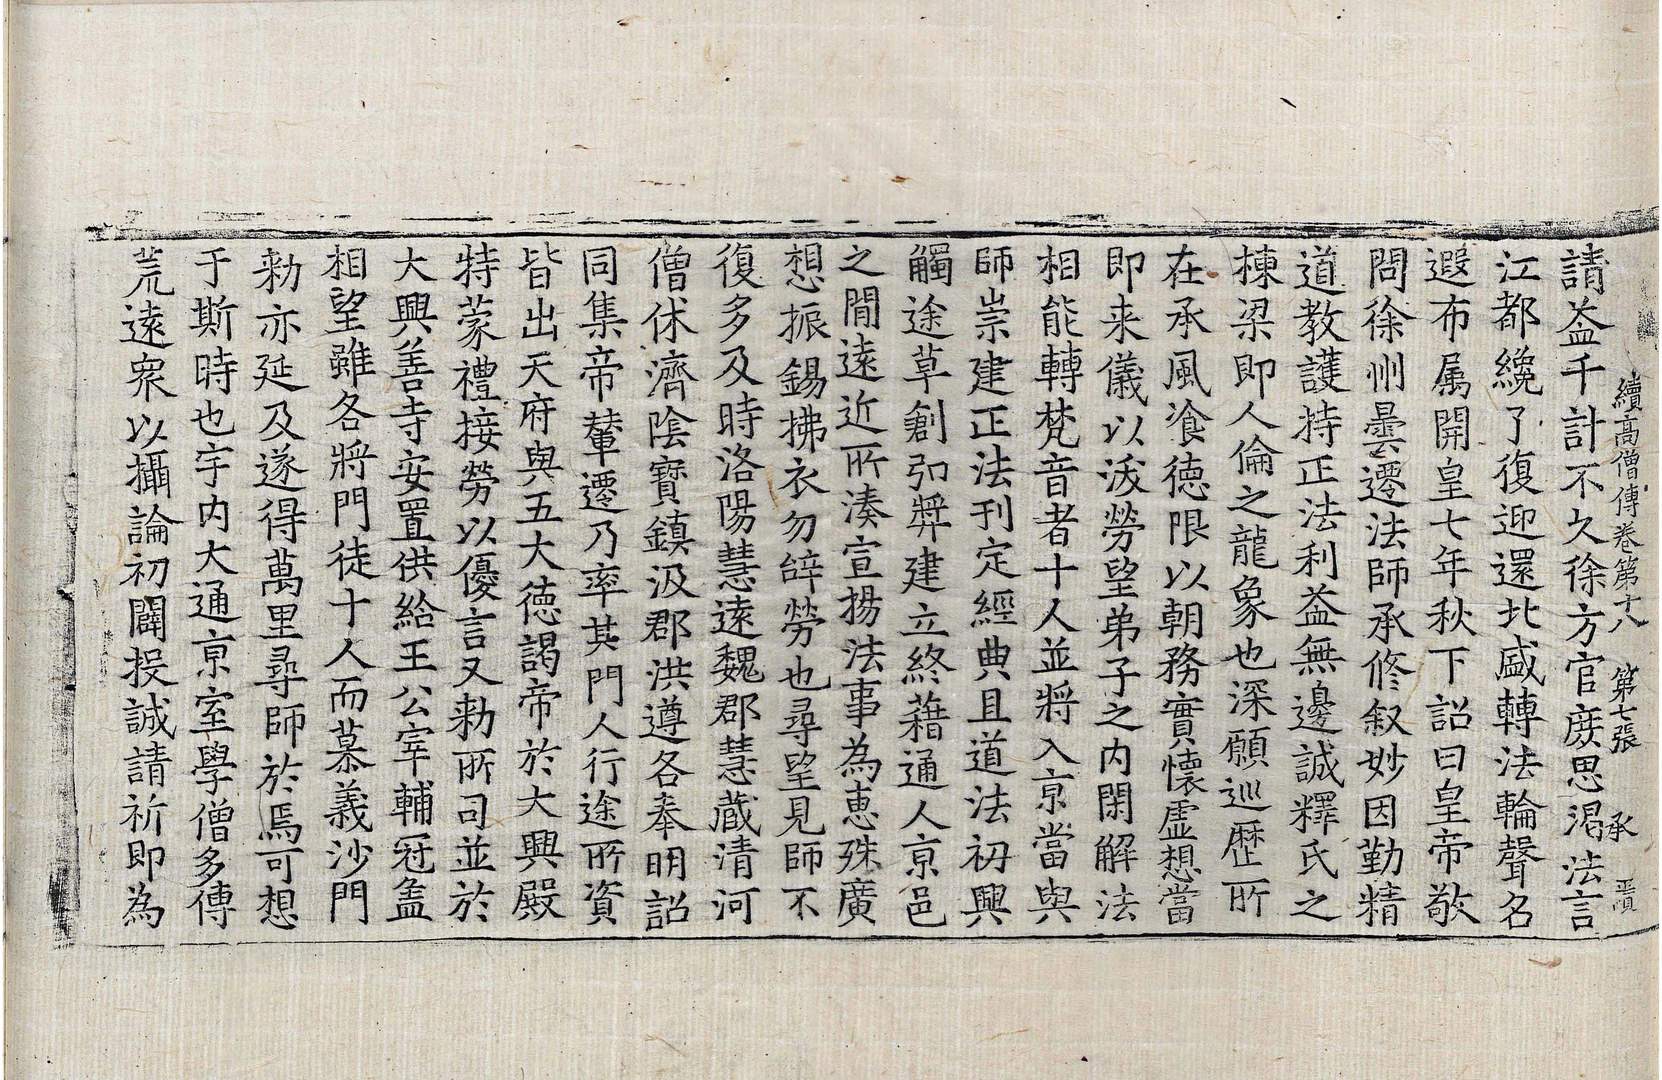 續高僧傳卷第十八 第七張 承
請益千計不久徐方官庻思渴法言
江都纔了復迎還北盛轉法輪聲名
遐布属開皇七年秋下詔曰皇帝敬
問徐州曇遷法師承修叙妙因勤精
道教護持正法利益無邊誠釋氏之
棟梁即人倫之龍象也深願巡歷所
在承風飡德限以朝務實懷虛想當
即来儀以沃勞望弟子之内閑解法
相能轉梵音者十人並將入京當與
師崇建正法刊定經典且道法初興
觸途草創弘奬建立終藉通人京邑
之間遠近所湊宣揚法事為惠殊廣
想振錫拂衣勿辝勞也尋望見師不
復多及時洛陽慧遠魏郡慧藏清河
僧休濟陰寳鎮汲郡洪遵各奉明詔
同集帝輦遷乃率其門人行途所資
皆出天府與五大徳謁帝於大興殿
特蒙禮接勞以優言又勑所司並於
大興善寺安置供給王公宰輔冠盖
相望雖各將門徒十人而慕義沙門
勑亦延及遂得萬里尋師於焉可想
于斯時也宇内大通京室學僧多傳
荒遠衆以攝論初闢投誠請祈即為